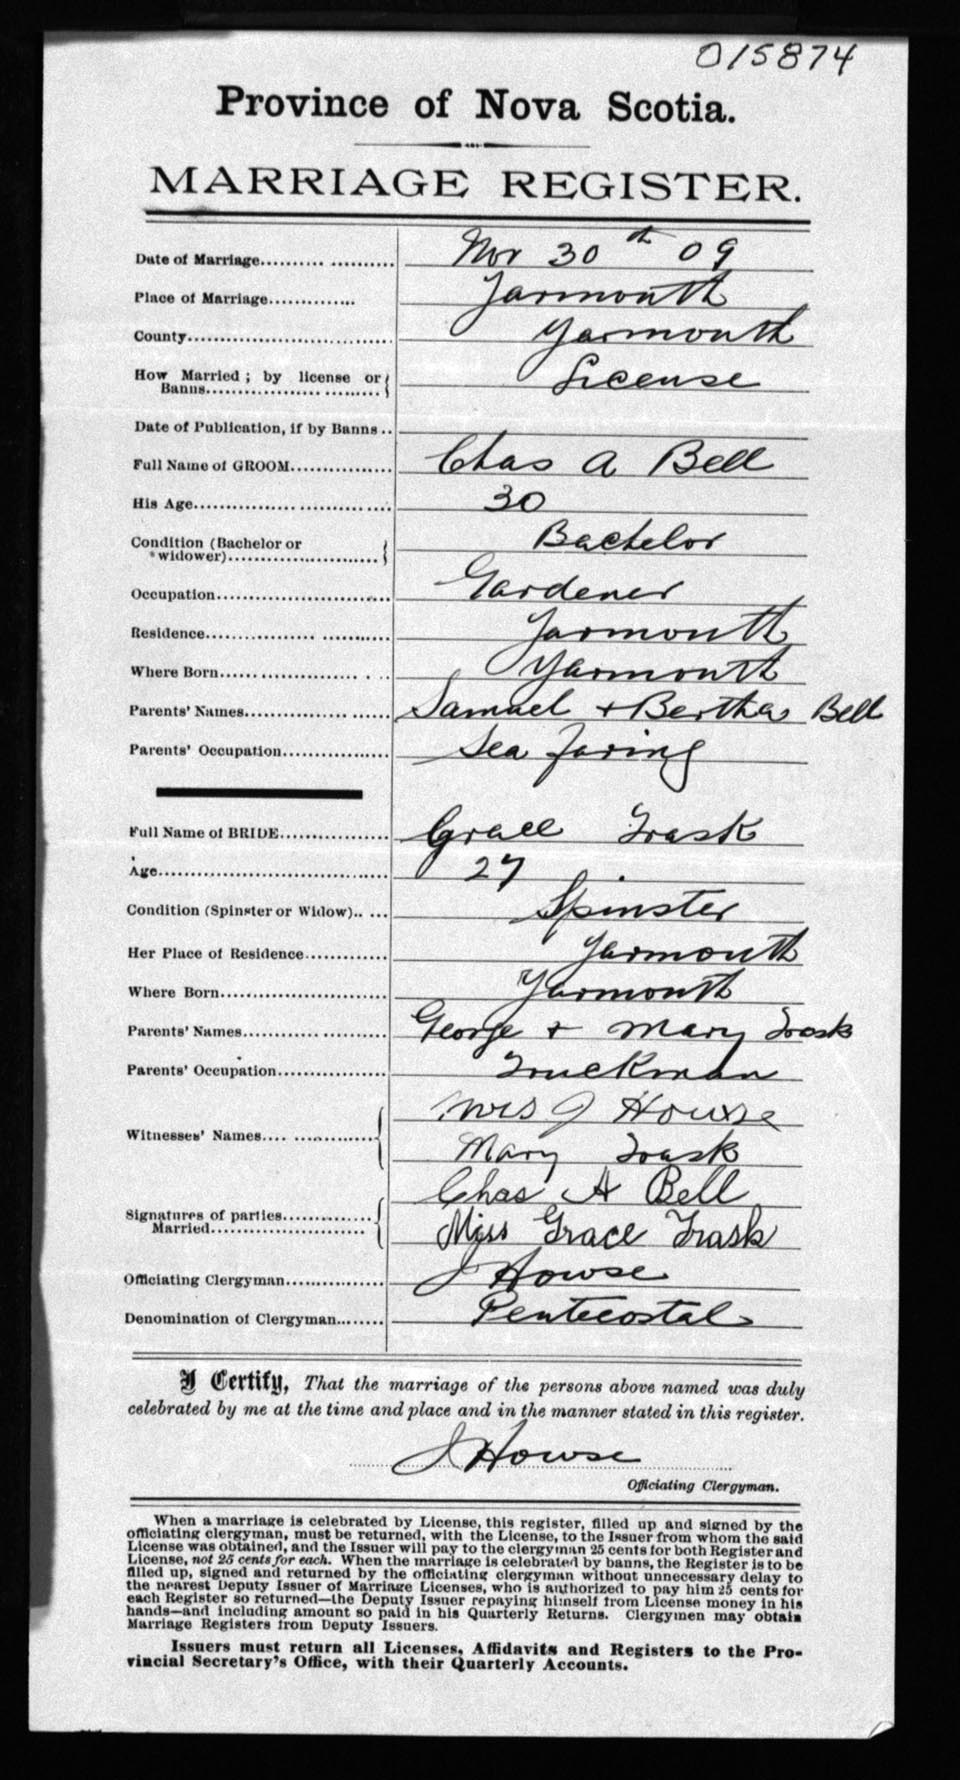 015874
Province of Nova Scotia.
MARRIAGE REGISTER.
Date of Marriage.................... Nov 30th 09
Place of Marriage............. Yarmouth
County.............................. Yarmouth
How Married; by license or
Banns........................... License
Date of Publication, if by Banns..
Full Name of GROOM............... Chas A Bell
His Age............................. 30
Condition (Bachelor or
widower)....................... Bachelor
Occupation......................... Gardener
Residence.......................... Yarmouth
Where Born........................ Yarmouth
Parents' Names..................... Samuel + Bertha Bell
Parents' Occupation................ Sea faring
Full Name of BRIDE................ Grace Trask
Age................................. 27
Condition (Spinster or Widow)..... Spinster
Her Place of Residence............ Yarmouth
Where Born........................ Yarmouth
Parents' Names..................... George + Mary Trask
Parents' Occupation................ Truckman
Witnesses' Names................. Mrs J Howse
Mary Trask
Signatures of parties.............. Chas A Bell
Married....................... Miss Grace Trask
Officiating Clergyman.............. J Howse
Denomination of Clergyman........ Pentecostal
I Certify, That the marriage of the persons above named was duly
celebrated by me at the time and place and in the manner stated in this register.
J Howse
Officiating Clergyman.
When a marriage is celebrated by License, this register, filled up and signed by the
officiating clergyman, must be returned, with the License, to the Issuer from whom the said
License was obtained, and the Issuer will pay to the clergyman 25 cents for both Register and
License, not 25 cents for each. When the marriage is celebrated by banns, the Register is to be
filled up, signed and returned by the officiating clergyman without unnecessary delay to
the nearest Deputy Issuer of Marriage Licenses, who is authorized to pay him 25 cents for
each Register so returned—the Deputy Issuer repaying himself from License money in his
hands—and including amount so paid in his Quarterly Returns. Clergymen may obtain
Marriage Registers from Deputy Issuers.
Issuers must return all Licenses, Affidavits and Registers to the Pro-
vincial Secretary's Office, with their Quarterly Accounts.